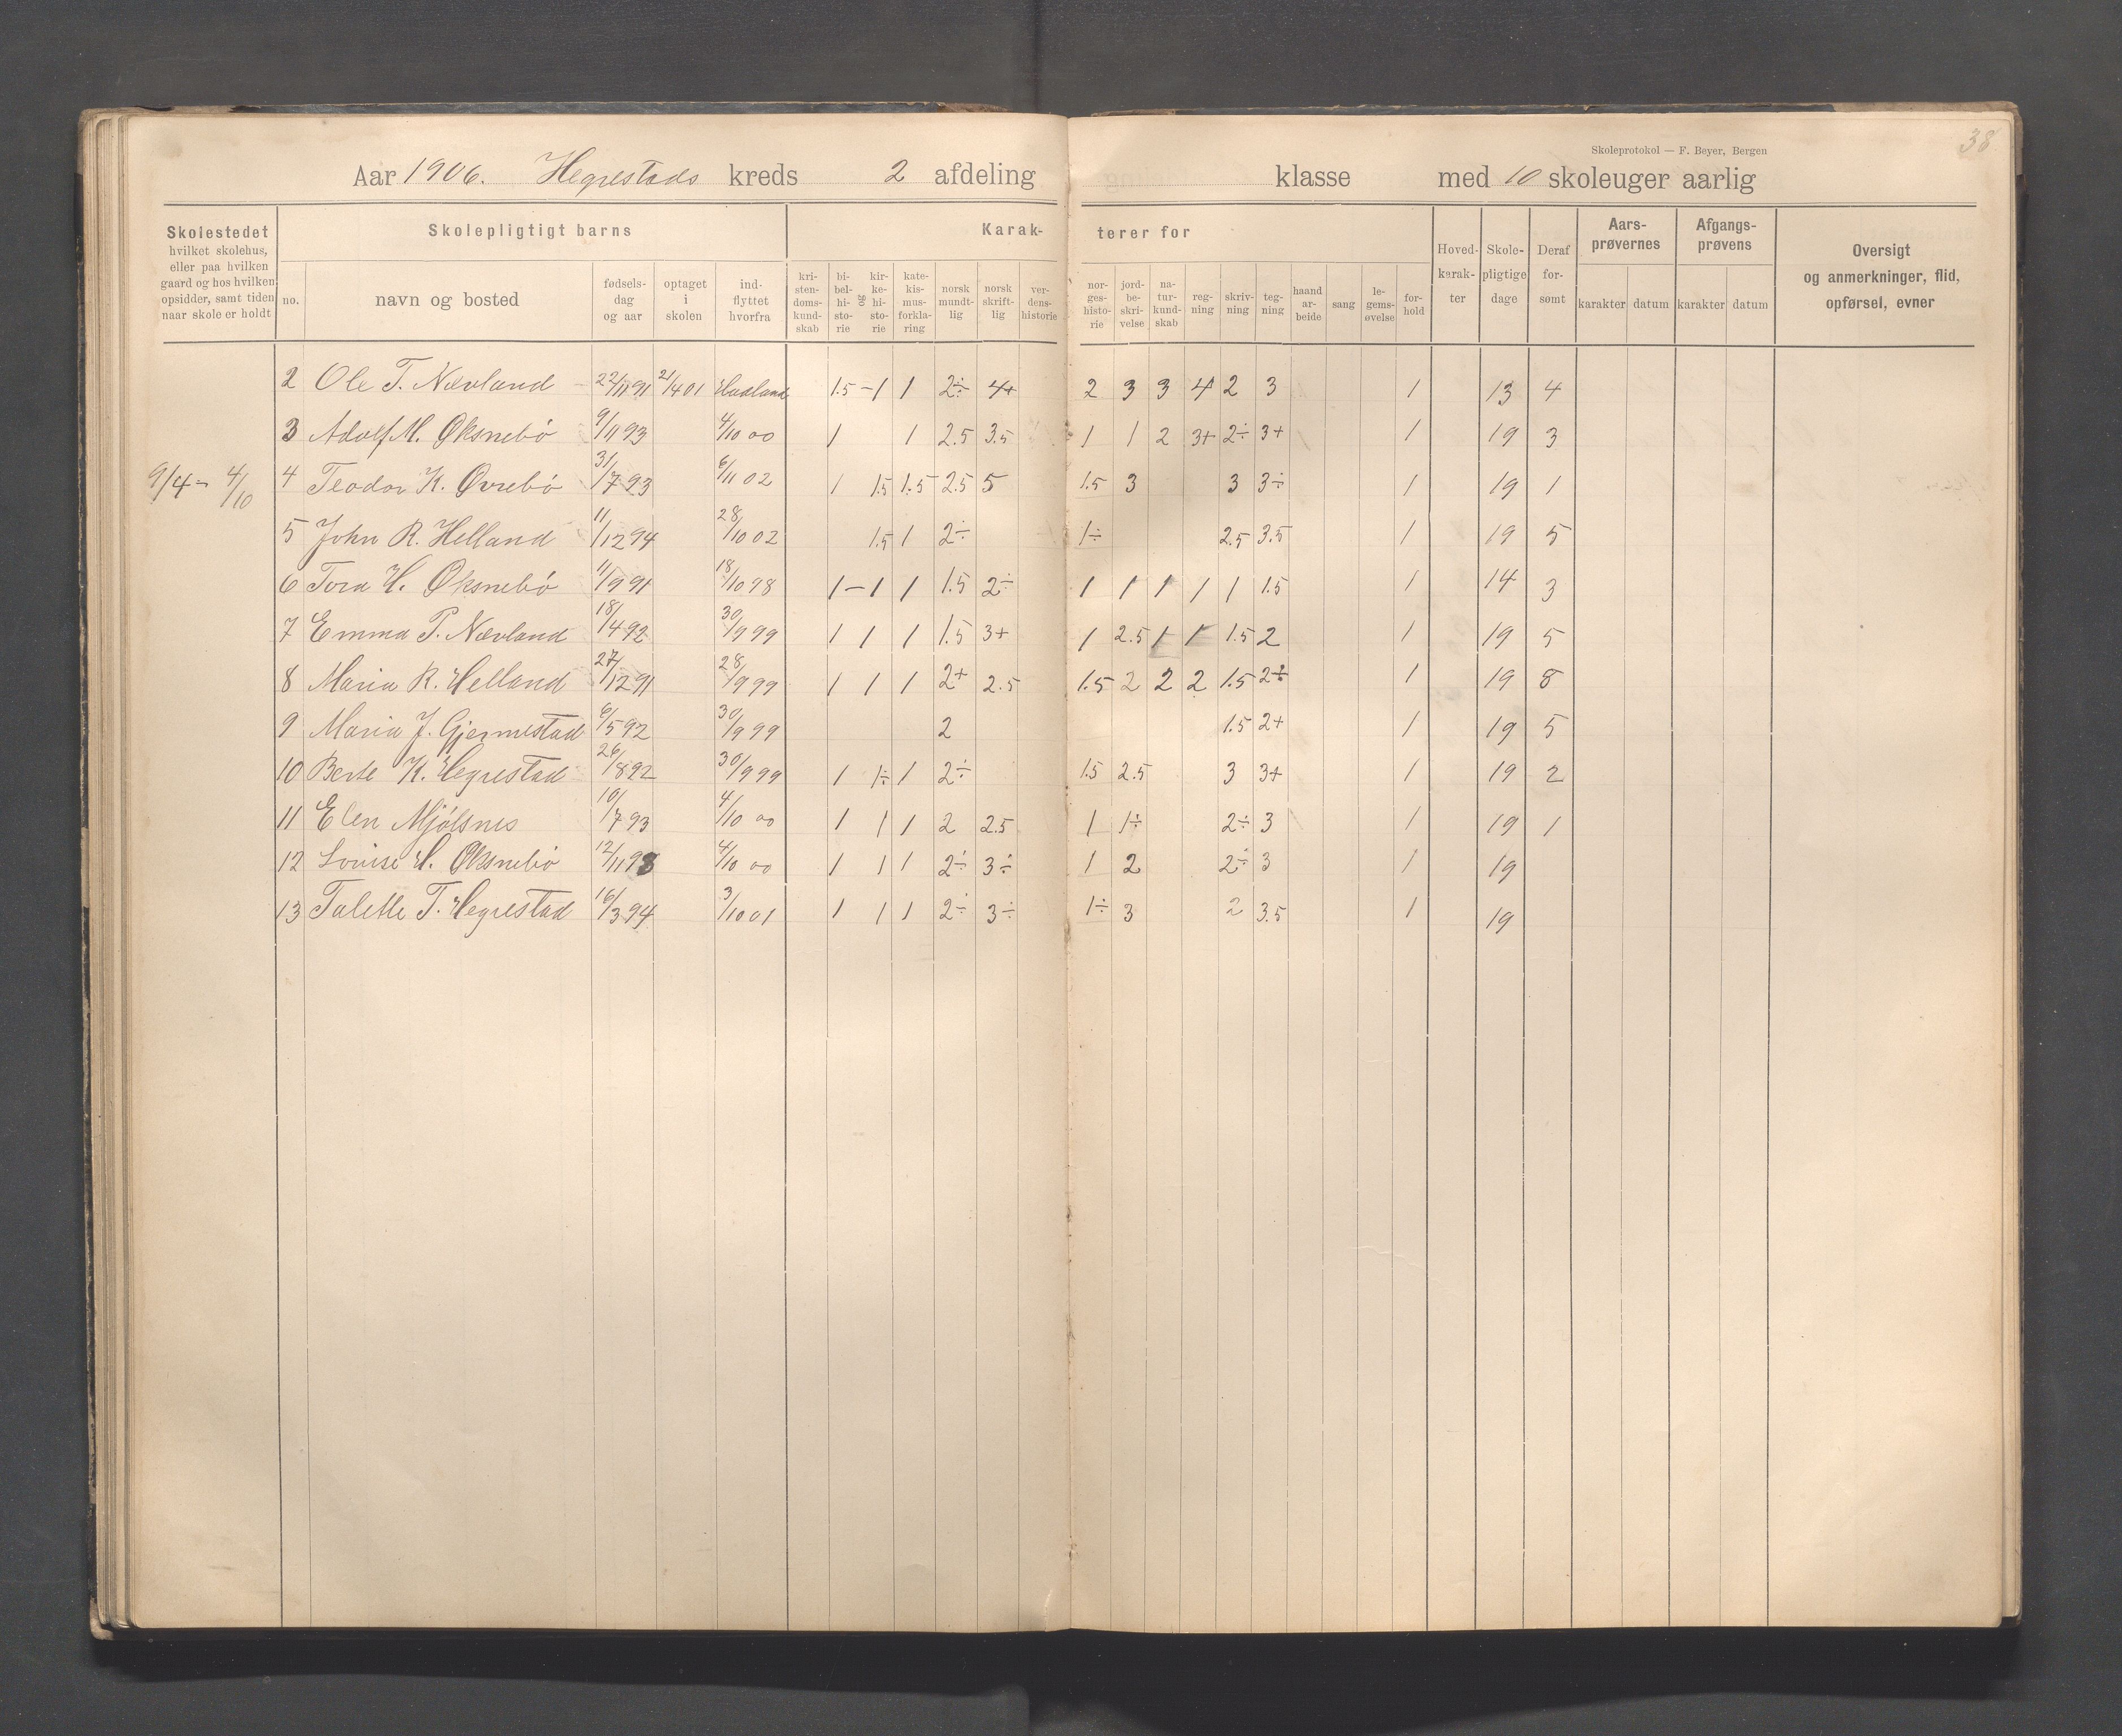 38
Skoleprotokol — F. Beyer, Bergen
Aar 1906. Hegrestads kreds 2 afdeling klasse med 10 skoleuger aarlig
Skolestedet hvilket skolehus, eller paa hvilken gaard og hos hvilken opsidder, samt tiden naar skole er holdt
Skolepligtigt barns
Karak- terer for
no. navn og bosted fødsels- dag og aar optaget i skolen ind- flyttet hvorfra
kri- sten- doms- kund- skab bi- bel- hi- sto- rie og kir- ke- hi- sto- rie kate- kis- mus- forkla- ring norsk mundt- lig norsk skrift- lig ver- dens- historie
nor- ges- histo- rie jord- be- skri- velse na- tur- kund- skab reg- ning skriv- ning teg- ning haand ar- beide sang le- gems- øvelse for- hold
Hoved- karak- ter Skole- pligtige dage Deraf for- sømt
Aars- prøvernes karakter datum
Afgangs- prøvens karakter datum
Oversigt og anmerkninger, flid, opførsel, evner
2 Ole T. Nævland 22/11 91 2/4 01 1.5 - 1 1 2÷ 4+ 2 3 3 4 2 3 1 13 4
3 Adolf M. Øksnebö 9/11 93 4/10 00 1 1 2.5 3.5 1 1 2 3+ 2÷ 3+ 1 19 3
9/4 - 4/10 4 Teodor K. Øvrebö 31/7 93 6/11 02 1 1.5 1.5 2.5 5 1.5 3 3 3÷ 1 19 1
5 John R. Helland 11/12 94 28/10 02 1.5 1 2÷ 1÷ 2.5 3.5 1 19 5
6 Tora H. Øksnebö 11/9 91 18/10 98 1 - 1 1 1.5 2÷ 1 1 1 1 1 1.5 1 14 3
7 Emma P. Nævland 18/4 92 30/9 99 1 1 1 1.5 3+ 1 2.5 1 1 1.5 2 1 19 5
8 Maria R. Helland 27/12 91 28/9 99 1 1 1 2+ 2.5 1.5 2 2 2 1.5 2÷ 1 19 8
9 Maria J. Gjermestad 6/5 92 30/9 99 2 1.5 2+ 1 19 5
10 Berte K. Hegrestad 26/8 92 30/9 99 1 1÷ 1 2÷ 1.5 2.5 3 3+ 1 19 2
11 Elen Mjölsnes 10/7 93 4/10 00 1 1 1 2 2.5 1 1÷ 2÷ 3 1 19 1
12 Lovise H. Øksnebö 12/11 93 4/10 00 1 1 1 2÷ 3÷ 1 2 2÷ 3 1 19
13 Talette T. Hegrestad 16/3 94 3/10 01 1 1 1 2÷ 3÷ 1÷ 3 2 3.5 1 19